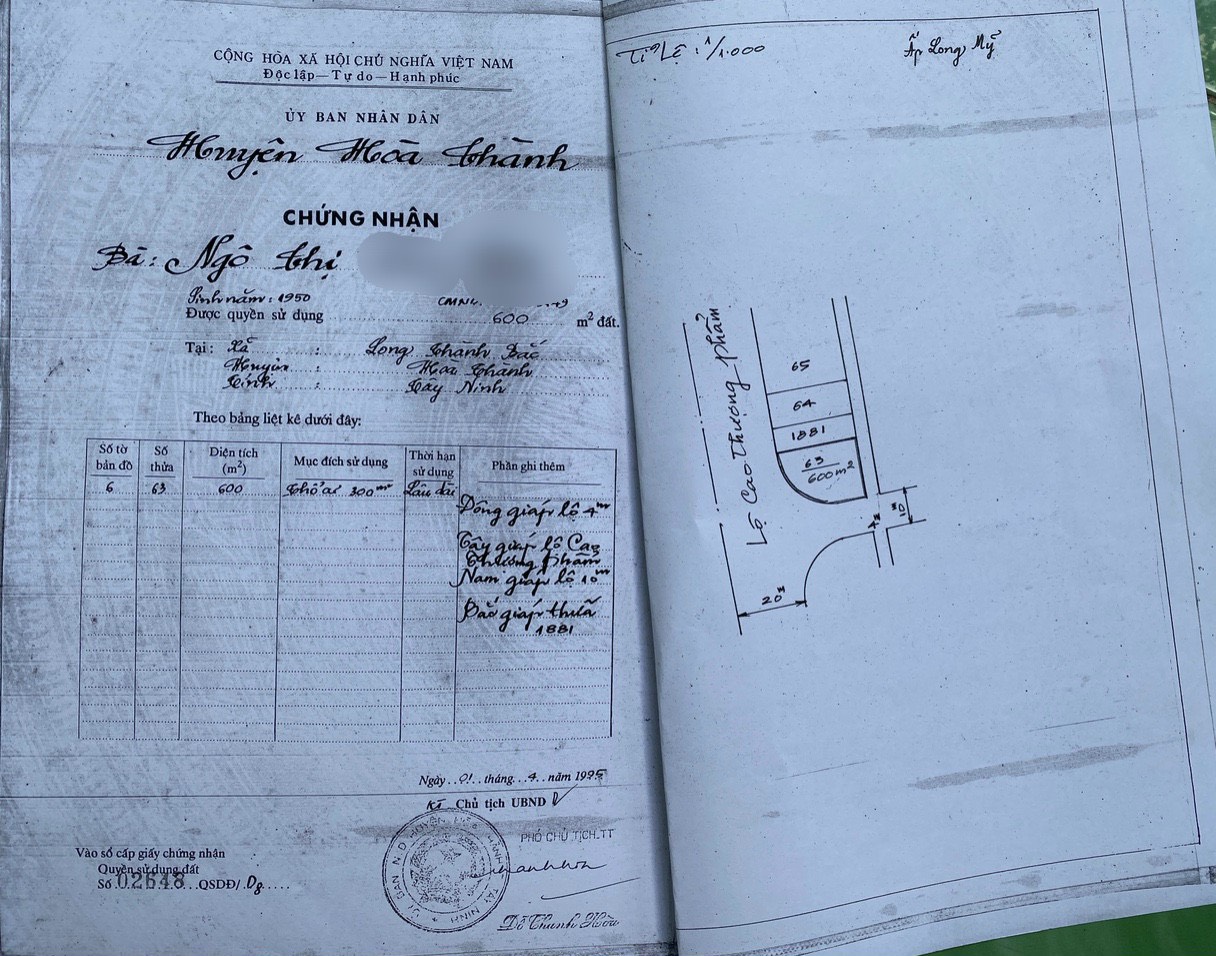 CỘNG HÒA XÃ HỘI CHỦ NGHĨA VIỆT NAM
Độc lập — Tự do — Hạnh phúc
ỦY BAN NHÂN DÂN
Huyện Hòa Thành
CHỨNG NHẬN
Bà: Ngô Thị
Sinh năm: 1950 CMN
Được quyền sử dụng 600 m² đất.
Tại: Xã : Long Thành Bắc
Huyện : Hòa Thành
Tỉnh : Tây Ninh
Theo bảng liệt kê dưới đây:
Số tờ bản đồ Số thửa Diện tích (m²) Mục đích sử dụng Thời hạn sử dụng Phần ghi thêm
6 63 600 Thổ cư 300m² Lâu dài
Đông giáp lộ 4m
Tây giáp lộ Cao
Thượng Phẩm
Nam giáp lộ 10m
Bắc giáp thửa
1881
Ngày 01 tháng 4 năm 1995
KT Chủ tịch UBND
PHÓ CHỦ TỊCH.TT
Đỗ Thanh Hòa
Vào sổ cấp giấy chứng nhận
Quyền sử dụng đất
Số 02648 QSDĐ/
Tỉ Lệ : 1/1.000
Ấp Long Mỹ
Lộ Cao Thượng Phẩm
65
64
1881
63
600m²
4m
10m
20m